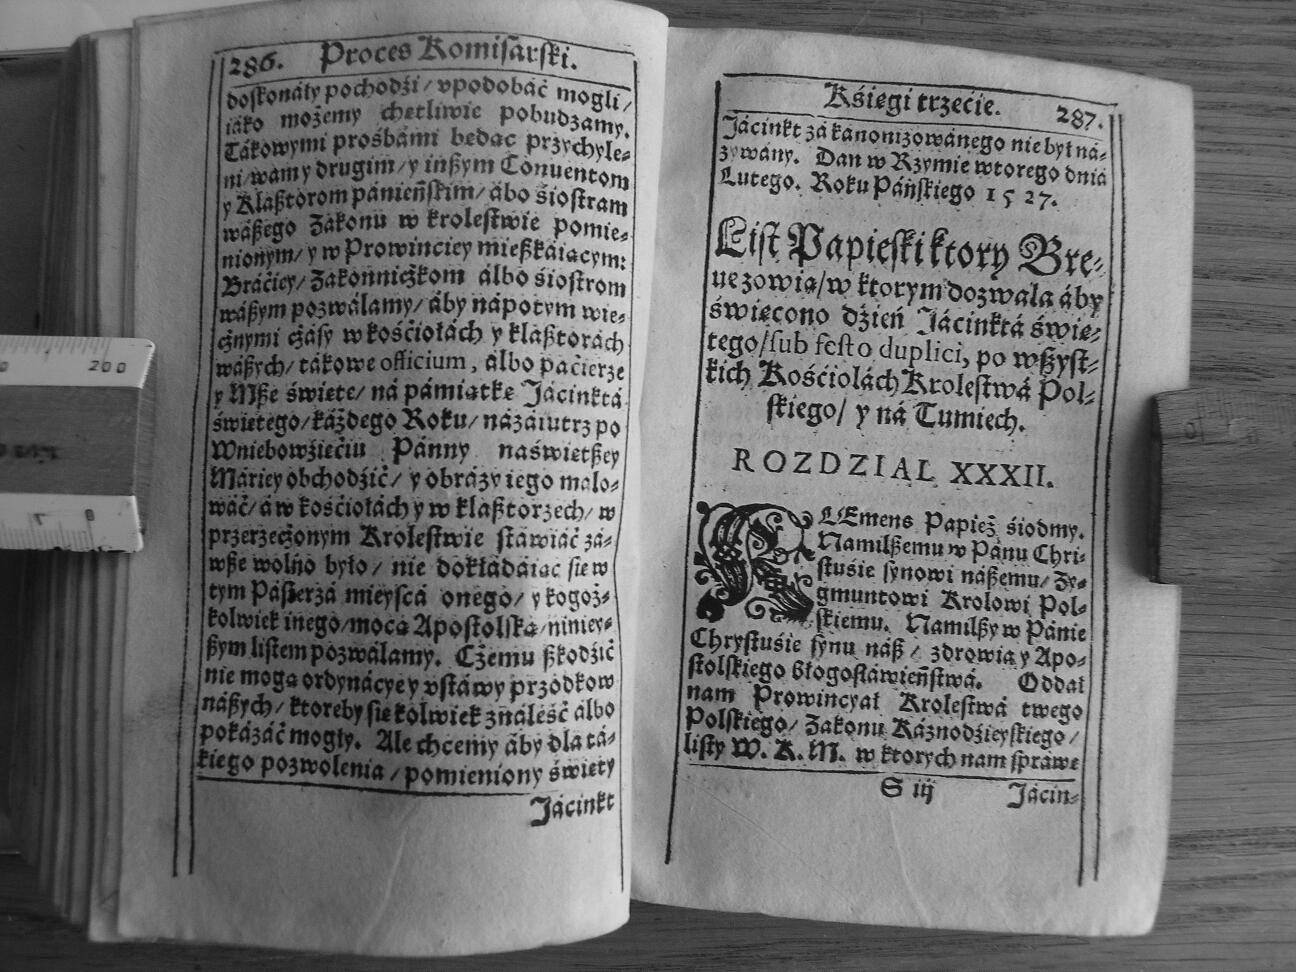 286. Proces Komisarski.
doskonáły pochodźi/ vpodobáć mogli/
iáko możemy chetliwie pobudzamy.
Tákowymi prośbámi bedac przychyle-
ni/ wam y drugim/ y inßym Conuentom
y Klaßtorom pánieńskim/ ábo siostram
wáßego Zakonu w krolestwie pomie-
nionym/ y w Prowinciey mießkáiacym:
Bráćiey/ Zakonniczkom álbo śiostrom
wáßym pozwálamy/ áby nápotym wie-
cżnymi cżásy w kośćiołách y klaßtorách
wáßych/ tákowe officium, álbo paćierze
y Mße święte/ ná pámiatke Jácinktá
świetego/ káżdego Roku/ názáiutrz po
Wniebowźiećiu Pánny naświetßey
Máriey obchodźić/ y obrázy iego malo-
wáć/ á w kośćiołách y w klaßtorzech/ w
przerzecżonym Krolestwie stáwiáć zá-
wße wolno było/ nie dokłádáiac sie w
tym Pásterzá mieyscá onego/ y kogoż-
kolwiek inego/ moca Apostolska/ niniey-
ßym listem pozwálamy. Cżemu ßkodźić
nie moga ordynácye y vstáwy przodkow
náßych/ ktoreby sie kolwiek ználeść álbo
pokázáć mogły. Ale chcemy áby dla tá-
kiego pozwolenia/ pomieniony święty
Jácinkt
Kśiegi trzećie. 287.
Jácinkt zá kánonizowánego nie był ná-
zywány. Dan w Rzymie wtorego dniá
Lutego. Roku Páńskiego 1527.
List Papieski ktory Bre-
ue zowią/ w ktorym dozwala áby
święcono dźień Jácinktá świe-
tego/ sub festo duplici, po wßyst-
kich Kośćiolách Krolestwá Pol-
skiego/ y ná Tumiech.
ROZDZIAL XXXII.
KLEmens Papież śiodmy.
Namilßemu w Pánu Chri-
stuśie synowi náßemu/ Zy-
gmuntowi Krolowi Pol-
skiemu. Namilßy w Pánie
Chrystuśie synu náß/ zdrowia y Apo-
stolskiego błogosłáwieństwá. Oddał
nam Prowincyał Krolestwá twego
Polskiego/ Zakonu Káznodźieyskiego/
listy W. K. M. w ktorych nam sprawe
S iij Jácin-